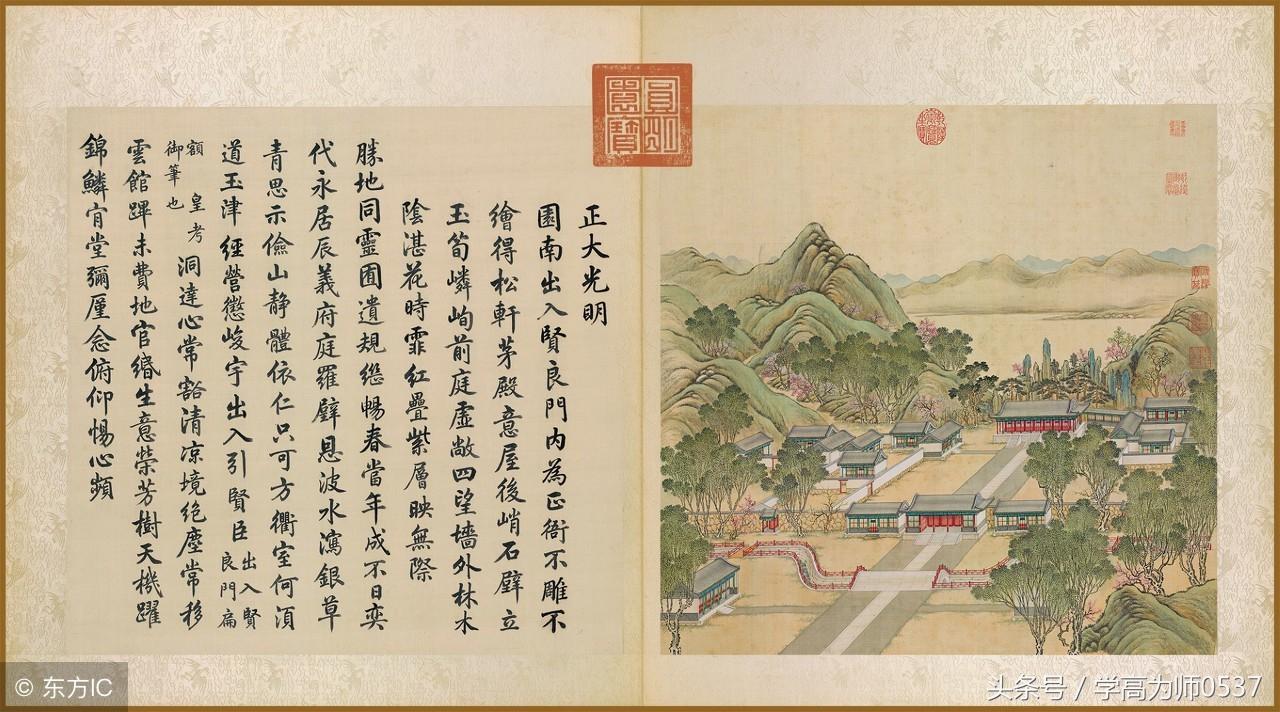 圓明園寶
正大光明
園南出入賢良門内為正衙不雕不
繪得松軒茅殿意屋後峭石壁立
玉筍嶙峋前庭虛敞四望墻外林木
陰湛花時霏紅疊紫層映無際
勝地同靈囿遺規繼暢春當年成不日奕
代永居辰義府庭羅璧恩波水瀉銀草
青思示儉山静體依仁只可方衢室何湏
道玉津經營懲峻宇出入引賢臣出入賢良門扁
額皇考御筆也洞達心常豁清凉境絕塵常移
雲館蹕未費地官緡生意榮芳樹天機躍
錦鱗肎堂彌廑念俯仰惕心頻
© 东方IC
头条号 / 学高为师0537